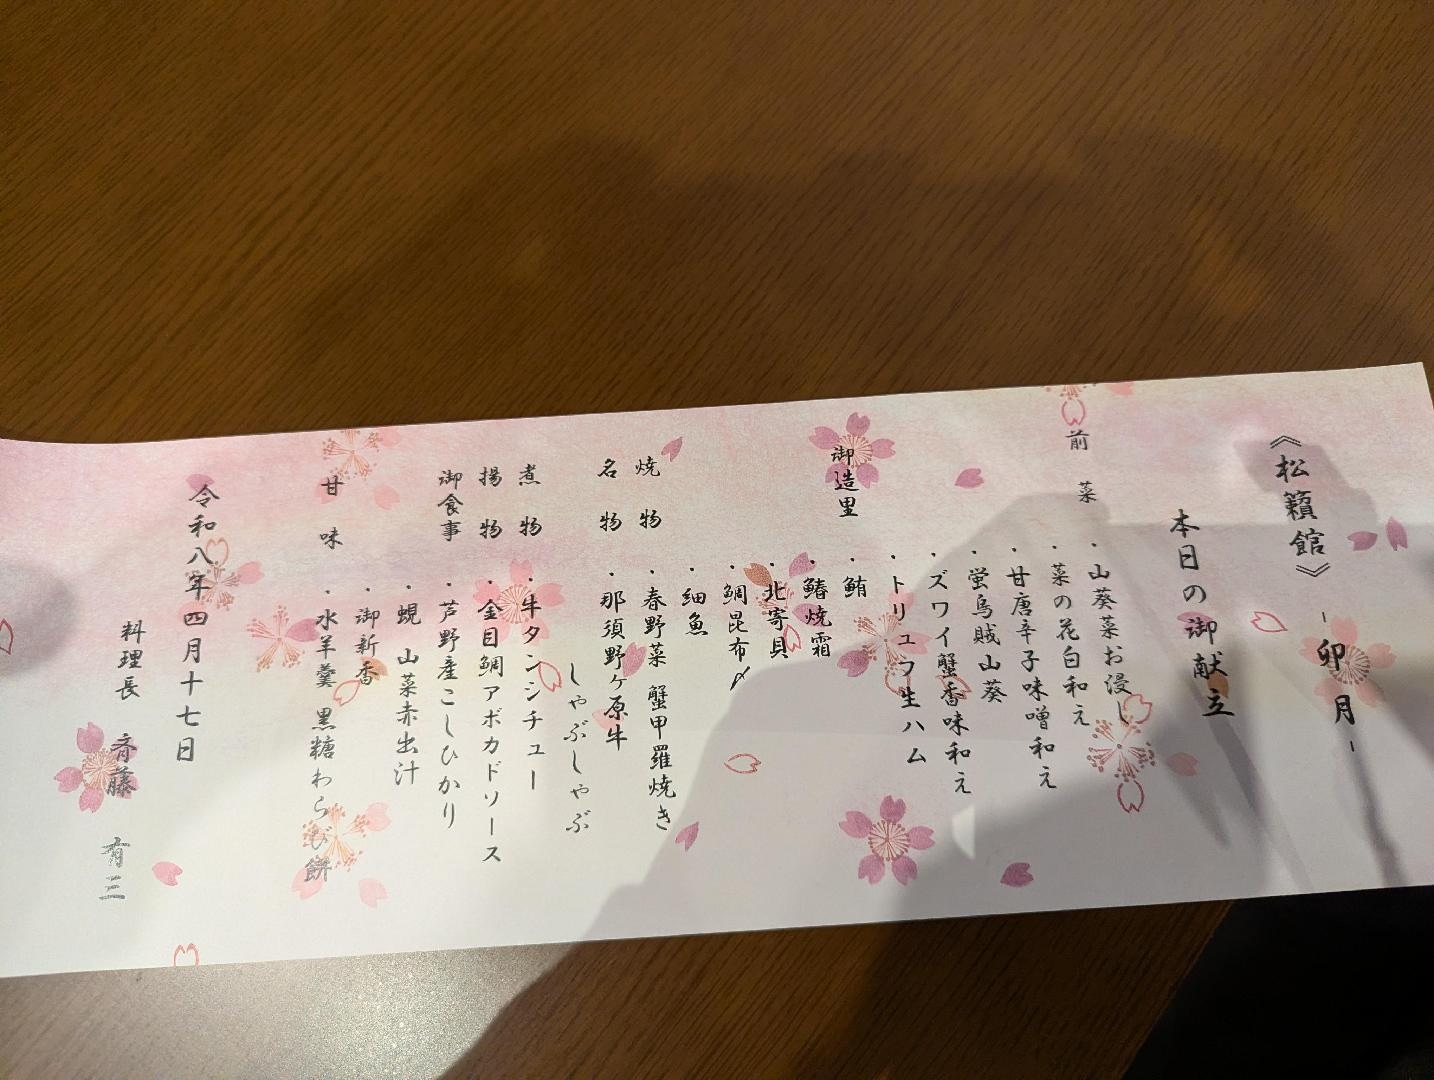 《松籟館》 -卯月-
本日の御献立
前菜 ・山葵菜お浸し
・菜の花白和え
・甘唐辛子味噌和え
・蛍烏賊山葵
・ズワイ蟹香味和え
・トリュフ生ハム
御造里 ・鮪
・鰆焼霜
・北寄貝
・鯛昆布〆
・細魚
焼物 ・春野菜 蟹甲羅焼き
名物 ・那須野ヶ原牛
しゃぶしゃぶ
煮物 ・牛タンシチュー
揚物 ・金目鯛アボカドソース
御食事 ・芦野産こしひかり
・蜆 山菜赤出汁
・御新香
甘味 ・水羊羹 黒糖わらび餅
令和八年四月十七日
料理長 斉藤 有三